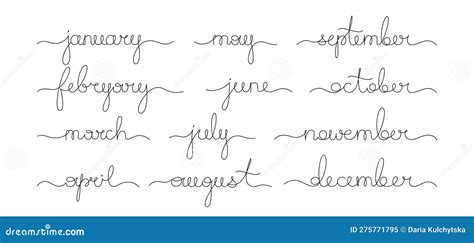 january may september
febryary june october
march july november
april august december
dreamstime.com ID 275771795 © Daria Kulchytska